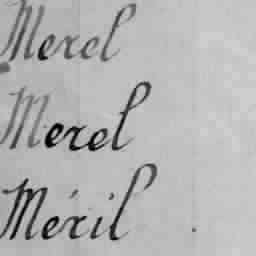 Merel
Merel
Méril